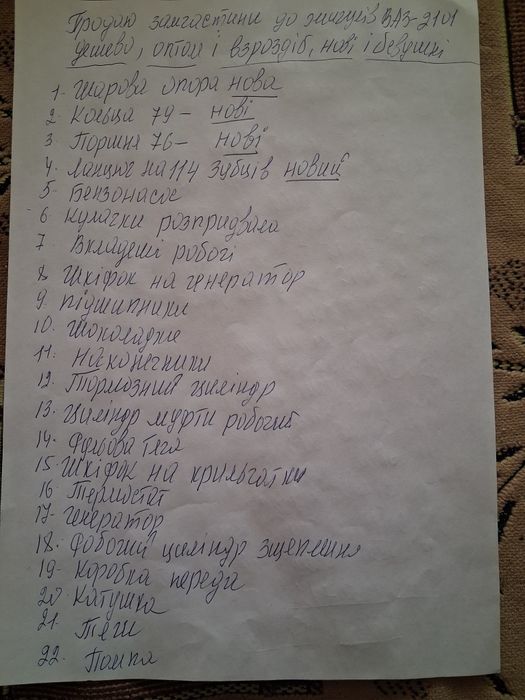 Продаю запчастини до жигулів ВАЗ-2101
дешево, оптом і взроздіб, нові і бевушні
1. Шарова опора нова
2. Кольца 79 - нові
3. Поршня 76 - нові
4. Ланцюг на 114 зубців новий
5. Бензонасос
6. Кулачки розпридвала
7. Вкладеші робогі
8. Шкіфок на генератор
9. підшипники
10.
11. Наконечники
12. Тормозний циліндр
13. Циліндр муфти робочий
14. Рульова тяга
15. Шкіфок на крильчатки
16. Термостат
17. генератор
18. Робочий циліндр зщеплення
19. Коробка переда
20. Катушка
21. Тяги
22. Помпа